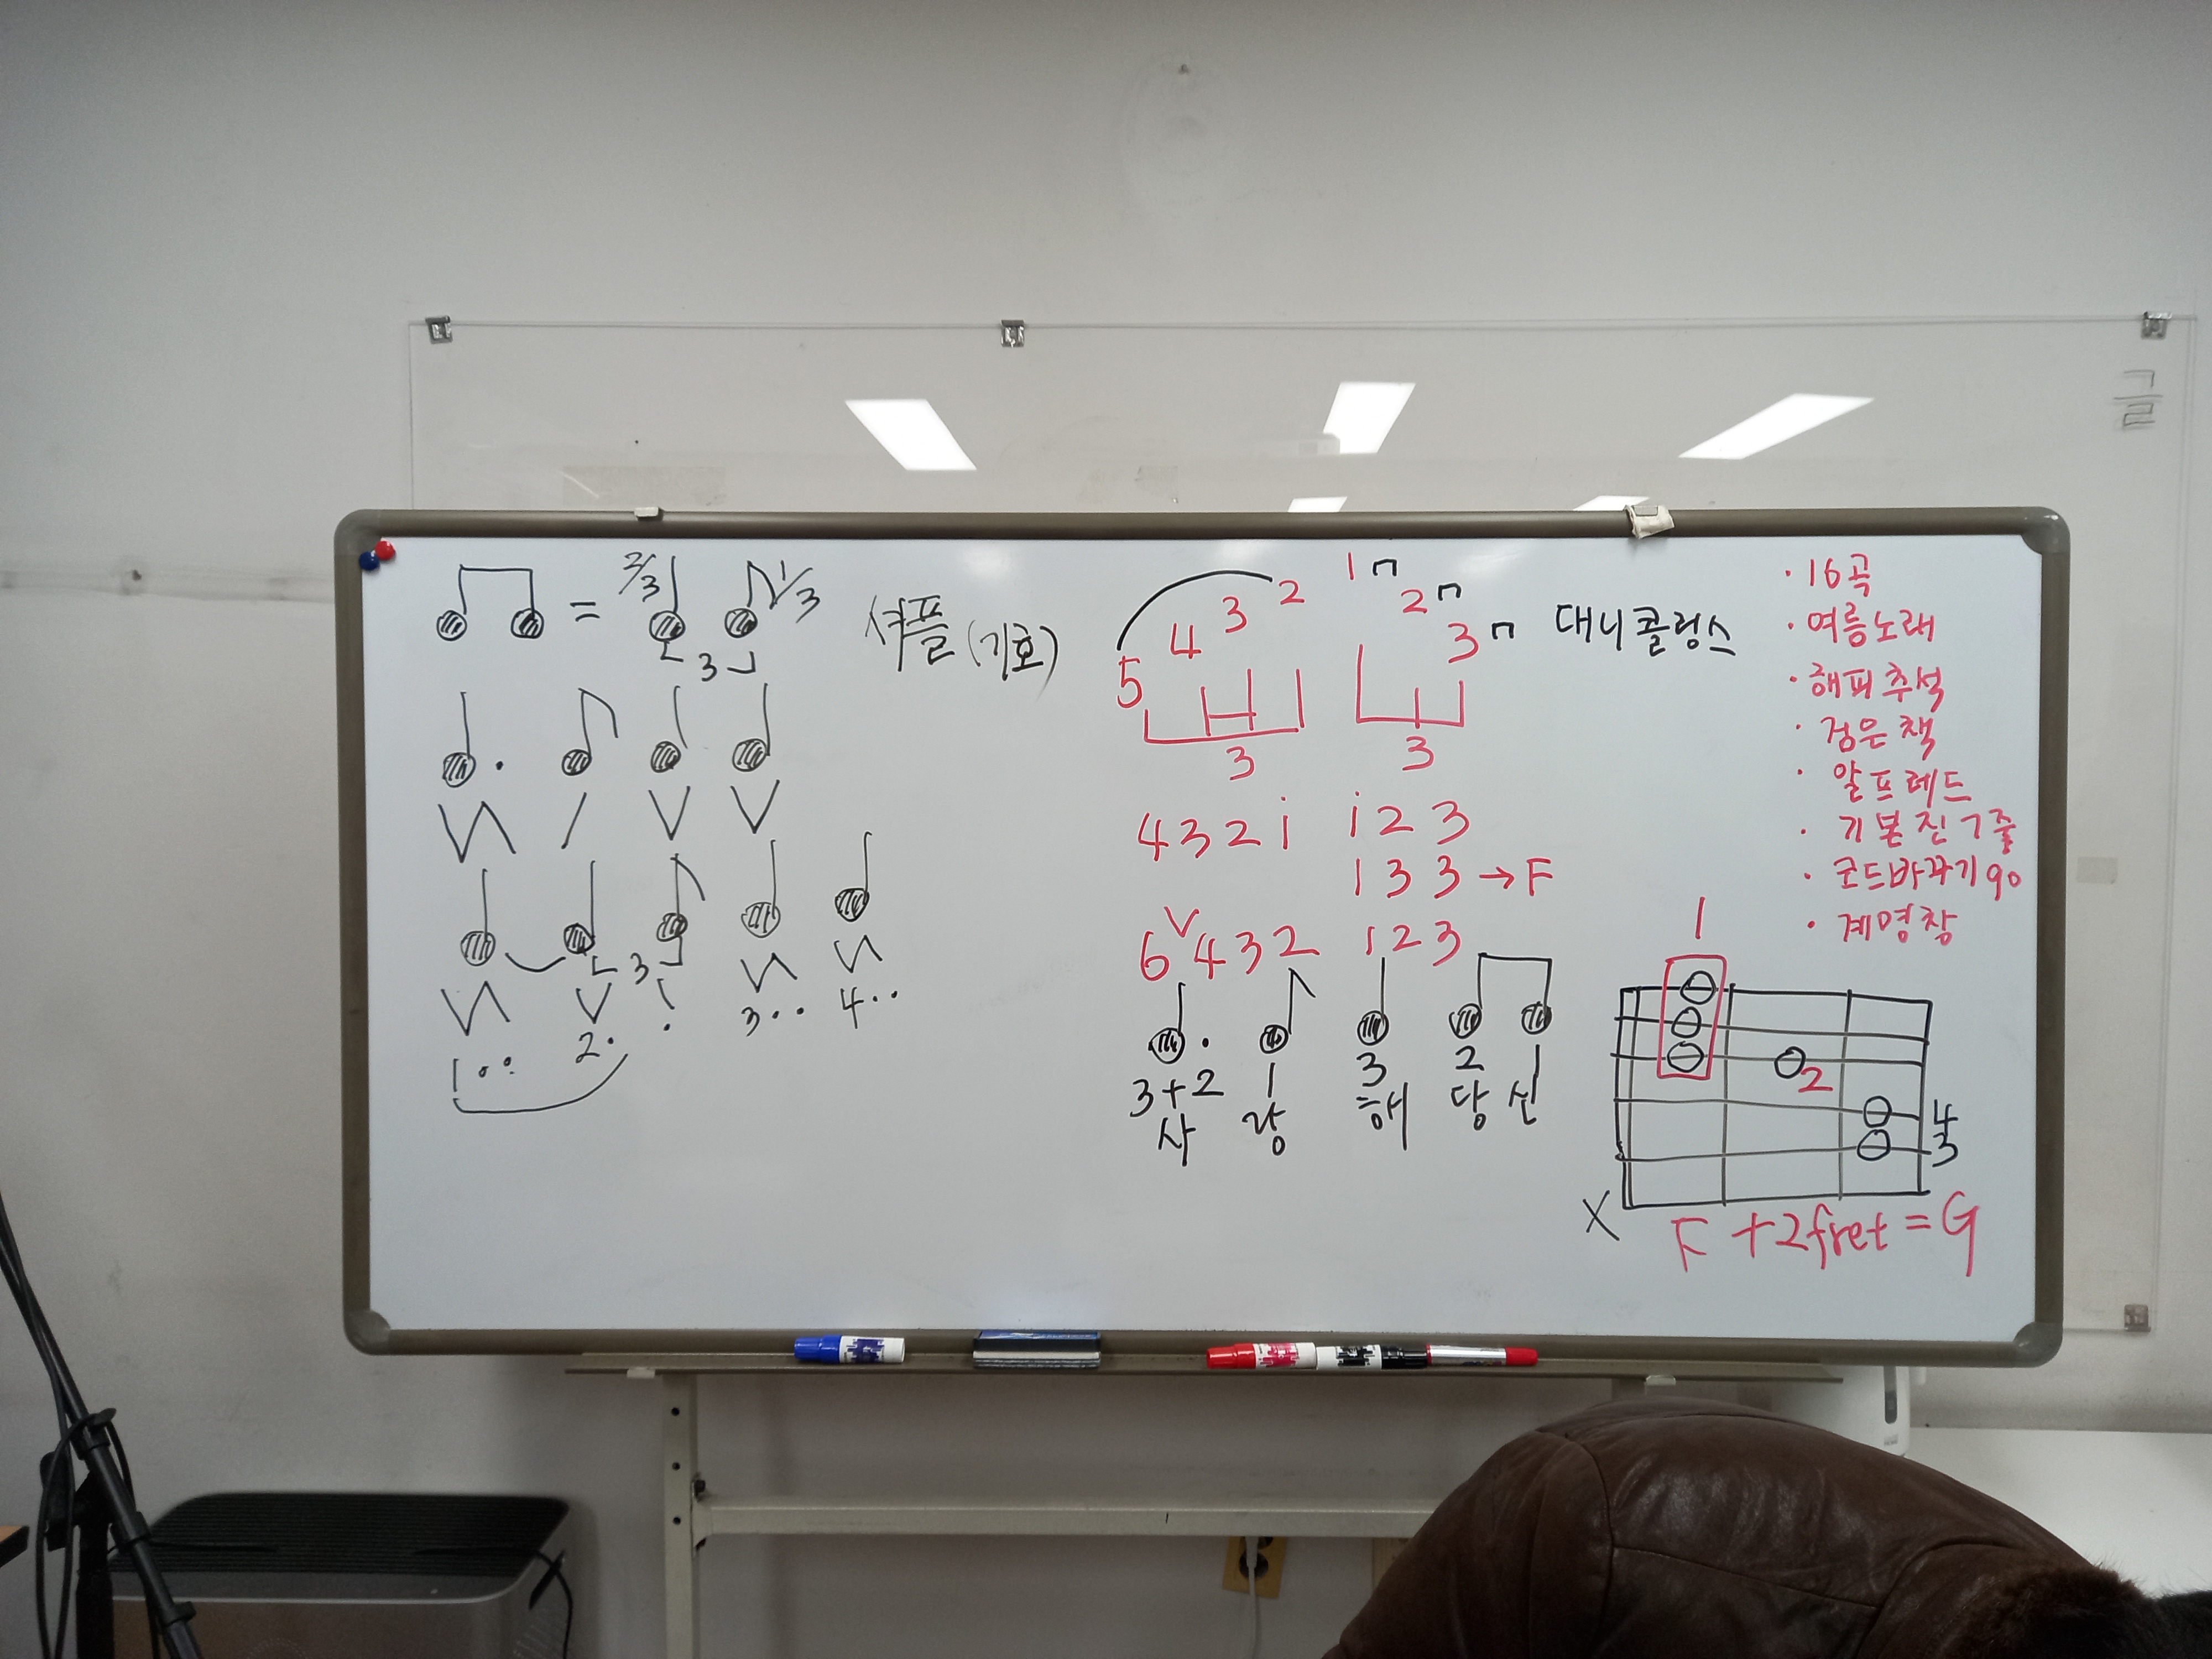 글
= 2/3 1/3
3
셔플 (기호)
1.. 2. . 3.. 4..
3
5 4 3 2 1 2 3
3 3
대니콜링스
4 3 2 i i 2 3
1 3 3 → F
6 v 4 3 2 1 2 3
3+2 1 3 2 1
사 랑 해 당 신
· 16곡
· 여름노래
· 해피추석
· 검은책
· 알프레드
· 기본진7줄
· 코드바꾸기90
· 계명창
1
2
4
3
X
F +2fret = G